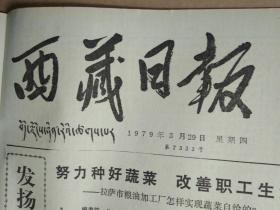 西藏日报
1979年3月29日 星期四
努力种好蔬菜 改善职工生
——拉萨市粮油加工厂怎样实现蔬菜自给的
发扬